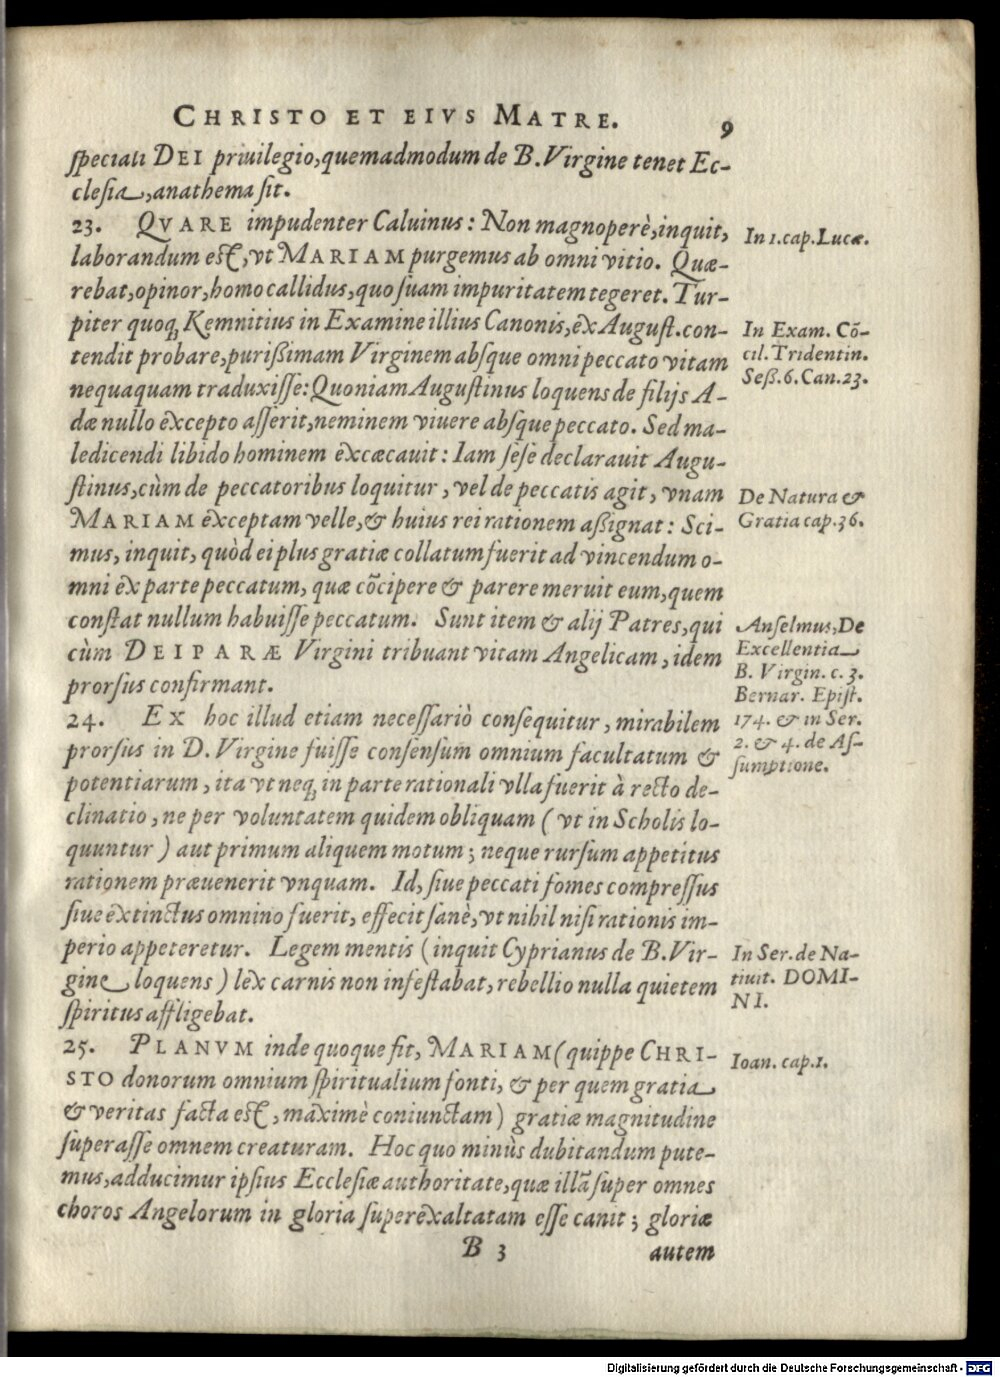 CHRISTO ET EIVS MATRE. 9
speciali DEI priuilegio, quemadmodum de B. Virgine tenet Ec-
clesia, anathema sit.
23. QVARE impudenter Caluinus: Non magnoperè, inquit,
In 1. cap. Lucæ.
laborandum est, vt MARIAM purgemus ab omni vitio. Quæ-
rebat, opinor, homo callidus, quo suam impuritatem tegeret. Tur-
piter quoq; Kemnitius in Examine illius Canonis, ex August. con-
In Exam. Cō-
tendit probare, purißimam Virginem absque omni peccato vitam
cil. Tridentin.
nequaquam traduxisse: Quoniam Augustinus loquens de filijs A-
Seß. 6. Can. 23.
dæ nullo excepto asserit, neminem viuere absque peccato. Sed ma-
ledicendi libido hominem excæcauit: Iam sese declarauit Augu-
stinus, cùm de peccatoribus loquitur, vel de peccatis agit, vnam
De Natura &
MARIAM exceptam velle, & huius rei rationem aßignat: Sci-
Gratia cap. 36.
mus, inquit, quòd ei plus gratiæ collatum fuerit ad vincendum o-
mni ex parte peccatum, quæ cōcipere & parere meruit eum, quem
constat nullum habuisse peccatum. Sunt item & alij Patres, qui
Anselmus, De
cùm DEIPARÆ Virgini tribuant vitam Angelicam, idem
Excellentia
prorsus confirmant.
B. Virgin. c. 3.
Bernar. Epist.
24. EX hoc illud etiam necessariò consequitur, mirabilem
174. & in Ser.
prorsus in D. Virgine fuisse consensum omnium facultatum &
2. & 4. de As-
potentiarum, ita vt neq; in parte rationali vlla fuerit à recto de-
sumptione.
clinatio, ne per voluntatem quidem obliquam (vt in Scholis lo-
quuntur) aut primum aliquem motum; neque rursum appetitus
rationem præuenerit vnquam. Id, siue peccati fomes compressus
siue extinctus omnino fuerit, effecit sanè, vt nihil nisi rationis im-
perio appeteretur. Legem mentis (inquit Cyprianus de B. Vir-
In Ser. de Na-
gine loquens) lex carnis non infestabat, rebellio nulla quietem
tiuit. DOMI-
spiritus affligebat.
NI.
25. PLANVM inde quoque fit, MARIAM (quippe CHRI-
Ioan. cap. 1.
STO donorum omnium spiritualium fonti, & per quem gratia
& veritas facta est, maximè coniunctam) gratiæ magnitudine
superasse omnem creaturam. Hoc quo minùs dubitandum pute-
mus, adducimur ipsius Ecclesiæ authoritate, quæ illā super omnes
choros Angelorum in gloria superexaltatam esse canit; gloriæ
B 3 autem
Digitalisierung gefördert durch die Deutsche Forschungsgemeinschaft - DFG